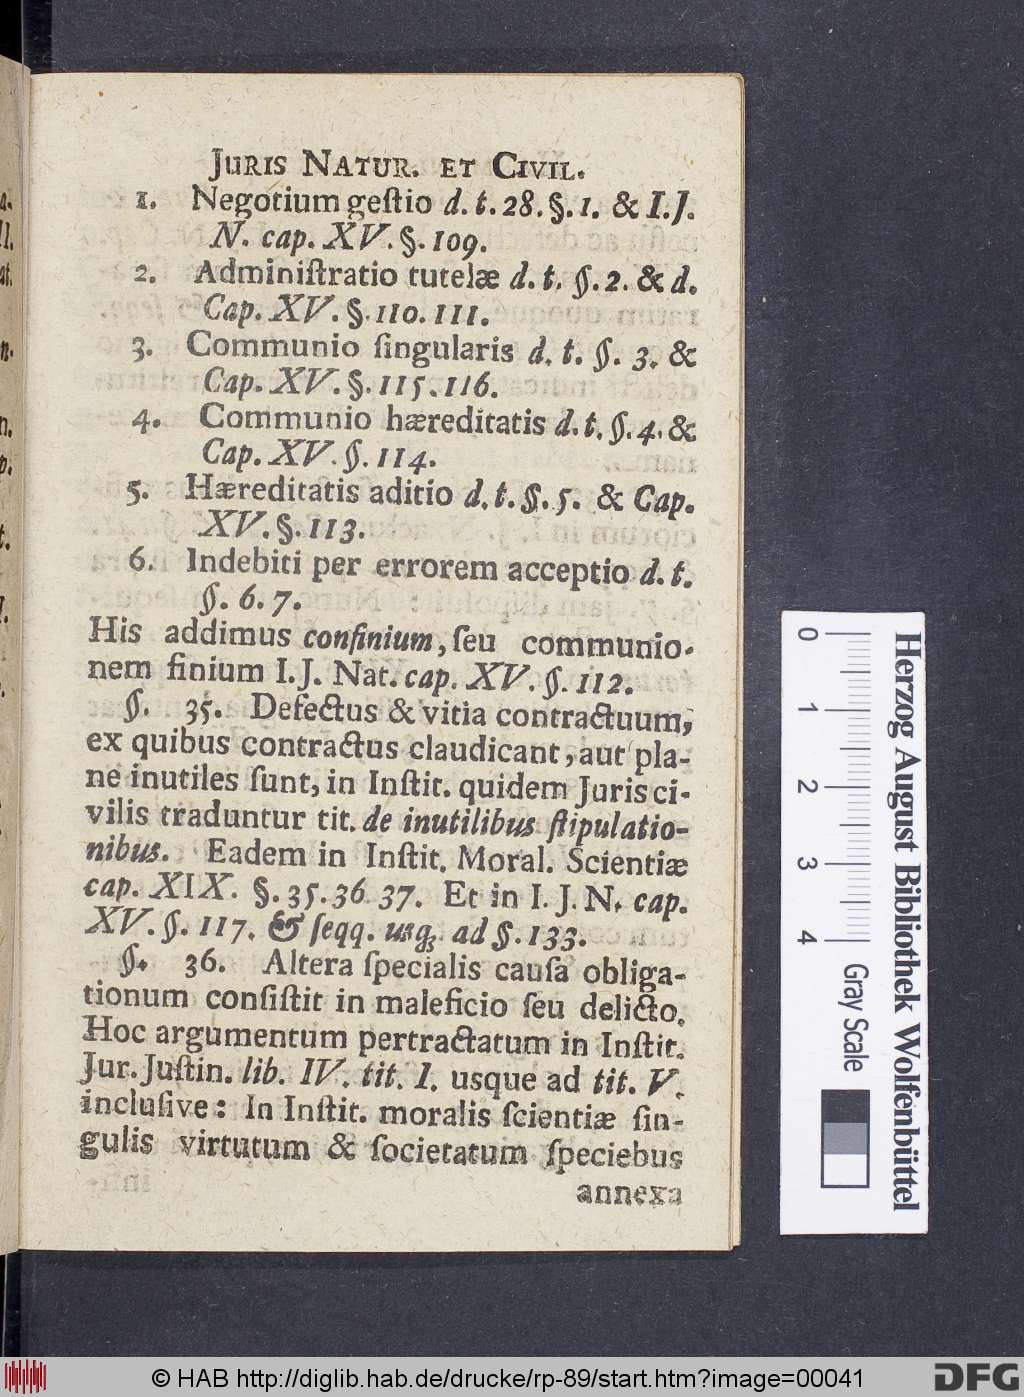 JURIS NATUR. ET CIVIL.
1. Negotium geſtio d. t. 28. §. 1. & I. J.
N. cap. XV. §. 109.
2. Adminiſtratio tutelæ d. t. §. 2. & d.
Cap. XV. §. 110. 111.
3. Communio ſingularis d. t. §. 3. &
Cap. XV. §. 115. 116.
4. Communio hæreditatis d. t. §. 4. &
Cap. XV. §. 114.
5. Hæreditatis aditio d. t. §. 5. & Cap.
XV. §. 113.
6. Indebiti per errorem acceptio d. t.
§. 6. 7.
His addimus confinium, ſeu communio-
nem finium I. J. Nat. cap. XV. §. 112.
§. 35. Defectus & vitia contractuum,
ex quibus contractus claudicant, aut pla-
ne inutiles ſunt, in Inſtit. quidem Juris ci-
vilis traduntur tit. de inutilibus ſtipulatio-
nibus. Eadem in Inſtit. Moral. Scientiæ
cap. XIX. §. 35. 36. 37. Et in I. J. N. cap.
XV. §. 117. & ſeqq. usq; ad §. 133.
§. 36. Altera ſpecialis cauſa obliga-
tionum conſiſtit in maleficio ſeu delicto.
Hoc argumentum pertractatum in Inſtit.
Jur. Juſtin. lib. IV. tit. I. usque ad tit. V.
incluſive: In Inſtit. moralis ſcientiæ ſin-
gulis virtutum & ſocietatum ſpeciebus
annexa
0 1 2 3 4
Gray Scale
Herzog August Bibliothek Wolfenbüttel
© HAB http://diglib.hab.de/drucke/rp-89/start.htm?image=00041
DFG